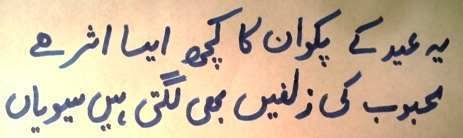 یہ عید کے پکوان کا کچھ ایسا اثر ہے
محبوب کی زلفیں بھی لگتی ہیں سیویاں